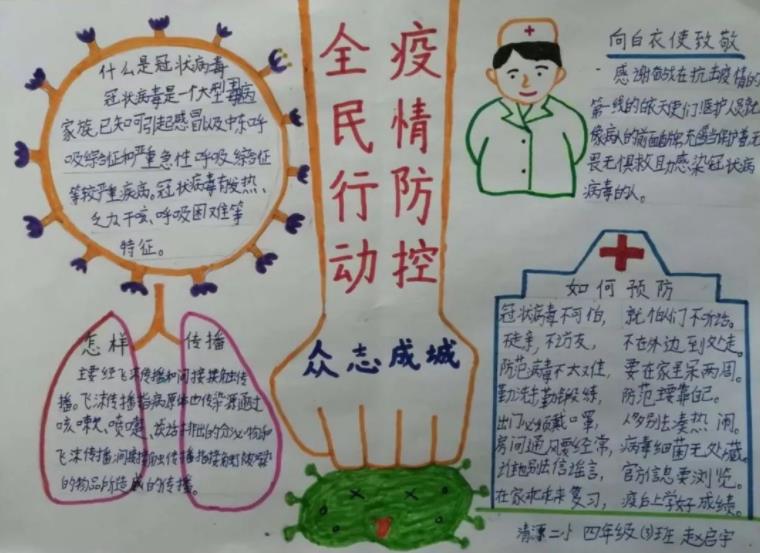 什么是冠状病毒
冠状病毒是一个大型病毒
家族,已知可引起感冒以及中东呼
吸综合征和严重急性呼吸综合征
等较严重疾病。冠状病毒有发热、
乏力干咳、呼吸困难等
特征。
疫情防控
全民行动
众志成城
向白衣使致敬
感谢奋战在抗击疫情的
第一线的白衣天使们医护人员就
畏无惧救助感染冠状病
病毒的人。
怎样传播
主要经飞沫传播和间接接触传
播。飞沫传播指病原体由传染源通过
咳嗽、喷嚏、谈话排出的分泌物和
的物品所造成的传播。
如何预防
冠状病毒不可怕，就怕们不听话。
不走亲，不访友，不在外边到处走。
防范病毒不太难，要在家里呆两周。
勤洗手勤锻练，防范主要靠自己。
出门必须戴口罩，人多别去凑热闹。
房间通风要经常，病毒细菌无处藏。
别信谣言，官方信息要浏览。
在家乖乖来复习，疫白上学好成绩。
清源二小 四年级(3)班 赵启宇